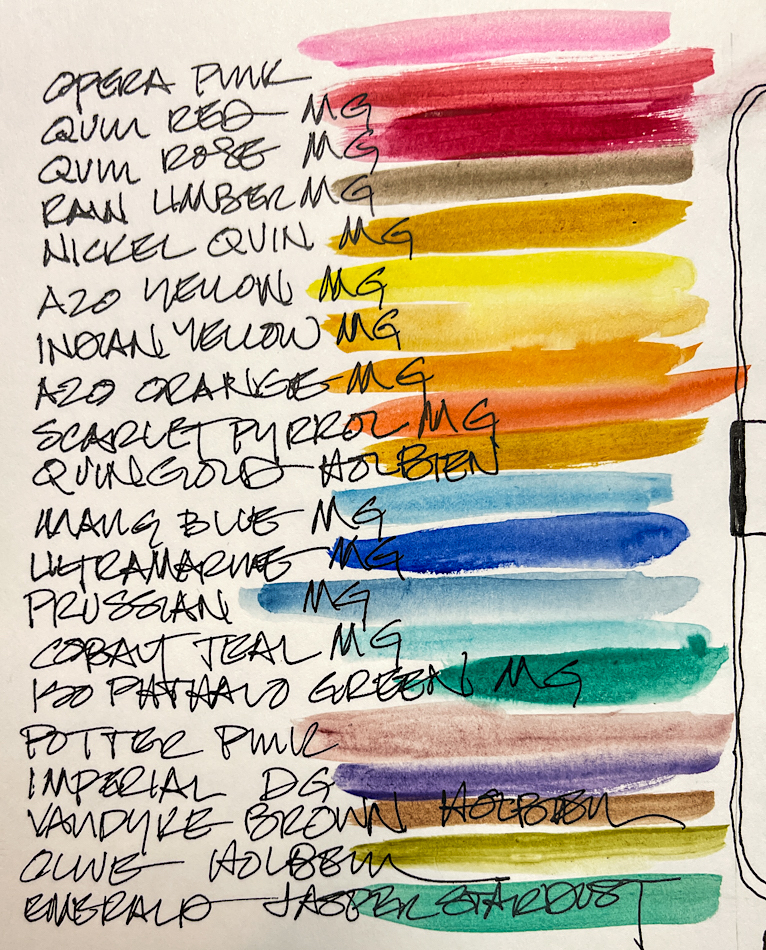 OPERA PINK
QUIN RED MG
QUIN ROSE MG
RAW UMBER MG
NICKEL QUIN MG
AZO YELLOW MG
INDIAN YELLOW MG
AZO ORANGE MG
SCARLET PYRROL MG
QUINGOLD HOLBIEN
MANG BLUE MG
ULTRAMARINE MG
PRUSSIAN MG
COBALT TEAL MG
ISO PHTHALO GREEN MG
POTTER PINK
IMPERIAL DG
VANDYKE BROWN HOLBEIN
OLIVE HOLBEIN
EMERALD JASPER STARDUST